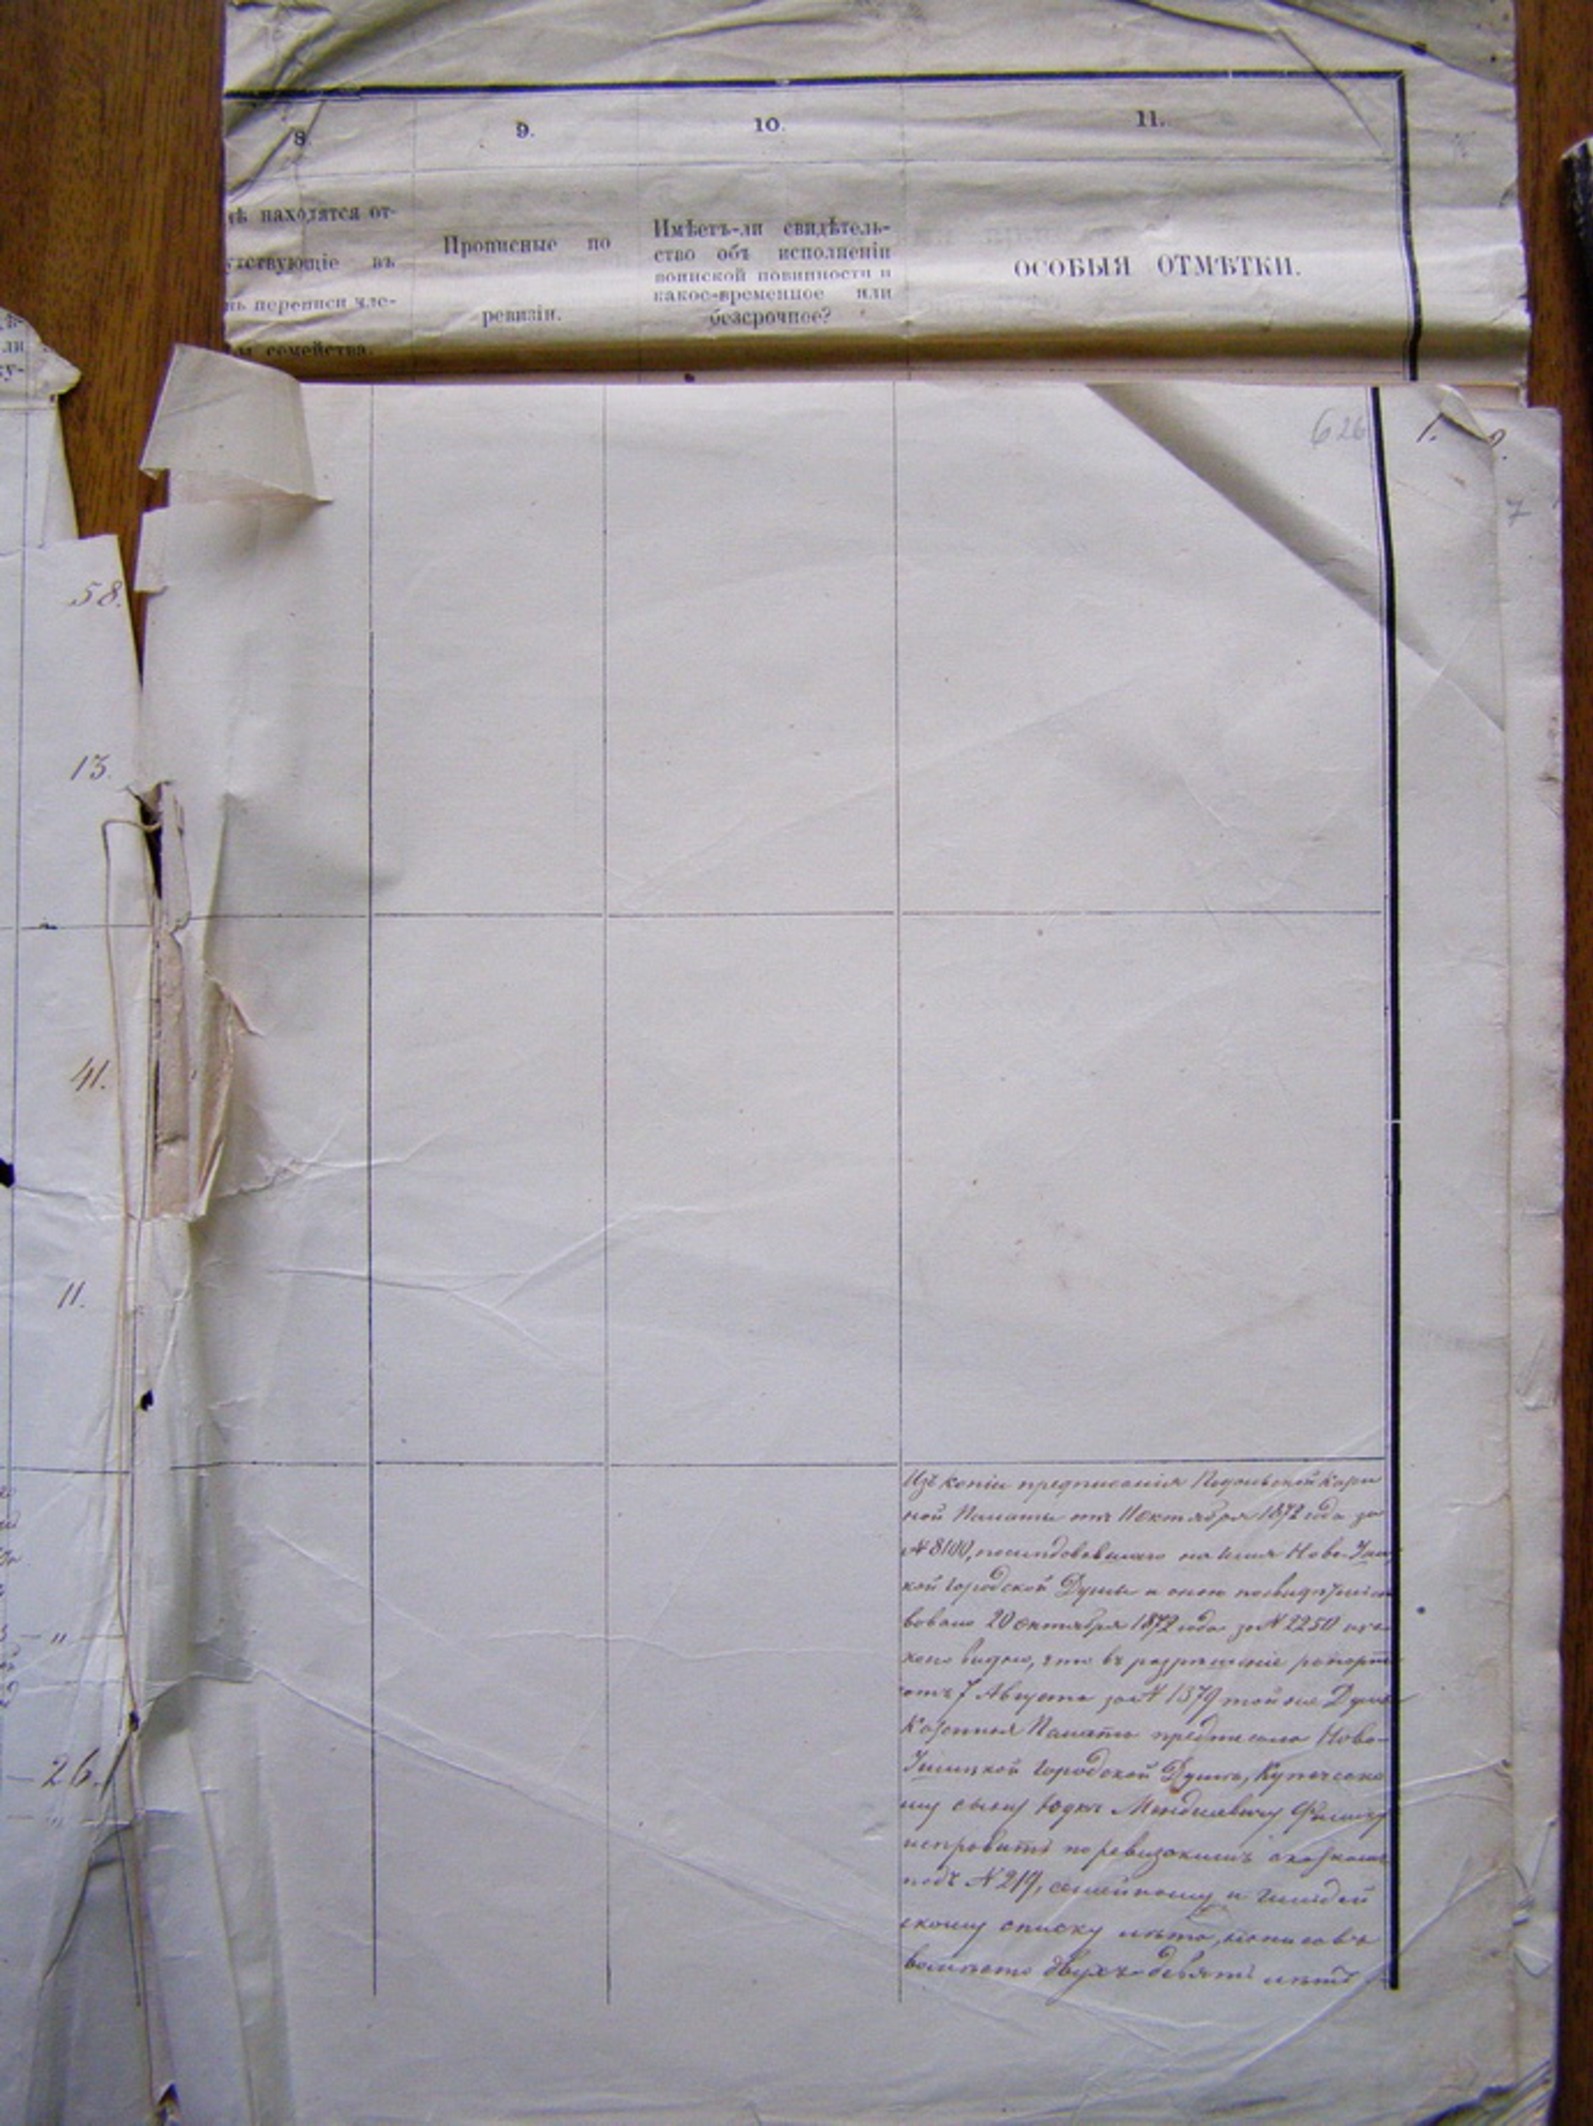 8.
9.
10.
11.
тѣ находятся от-
утствующіе въ
нь переписи чле-
ы семейства.
Прописные по
ревизіи.
Имѣетъ-ли свидѣтель-
ство объ исполненіи
воинской повинности и
какое-временное или
безсрочное?
ОСОБЫЯ ОТМѢТКИ.
ли
ку-
626
1.
7
58.
13.
41.
11.
— 26.
Изъ копіи предписанія Подольской Казен
ной Палаты отъ 11 Октября 1872 года за
№ 8100, последовавшаго на имя Ново-Уши
кой Городской Думы и оною
вовано 20 Октября 1872 года за № 2250
коего видно, что въ разрешеніе рапорта
отъ 7 Августа за № 1379 той же Думы
Казенная Палата предписала Ново-
Ушицкой Городской Думѣ, Купеческо
му сыну Юдкѣ Мендилевичу
исправить по ревизскимъ сказкамъ
подъ № 219, семейному и
скому списку лѣта, написавъ
вамѣсто двухъ девять лѣтъ